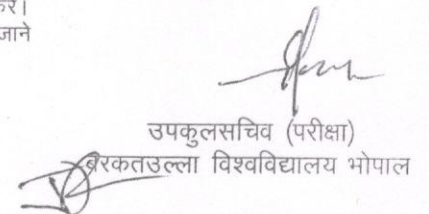 करें।
जाने
उपकुलसचिव (परीक्षा)
बरकतउल्ला विश्वविद्यालय भोपाल